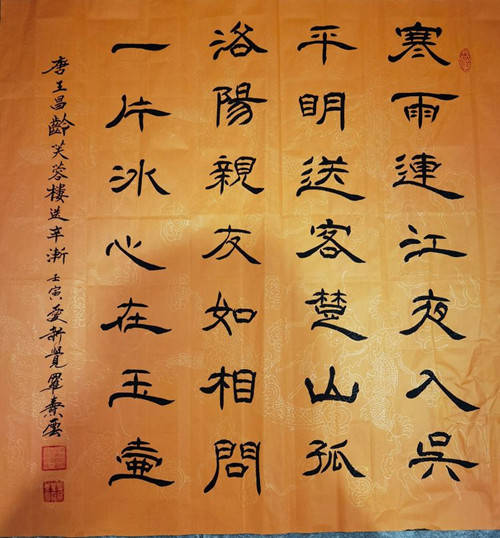 寒雨連江夜入吳
平明送客楚山孤
洛陽親友如相問
一片冰心在玉壺
唐王昌齡芙蓉樓送辛漸壬寅愛新覺羅素雲